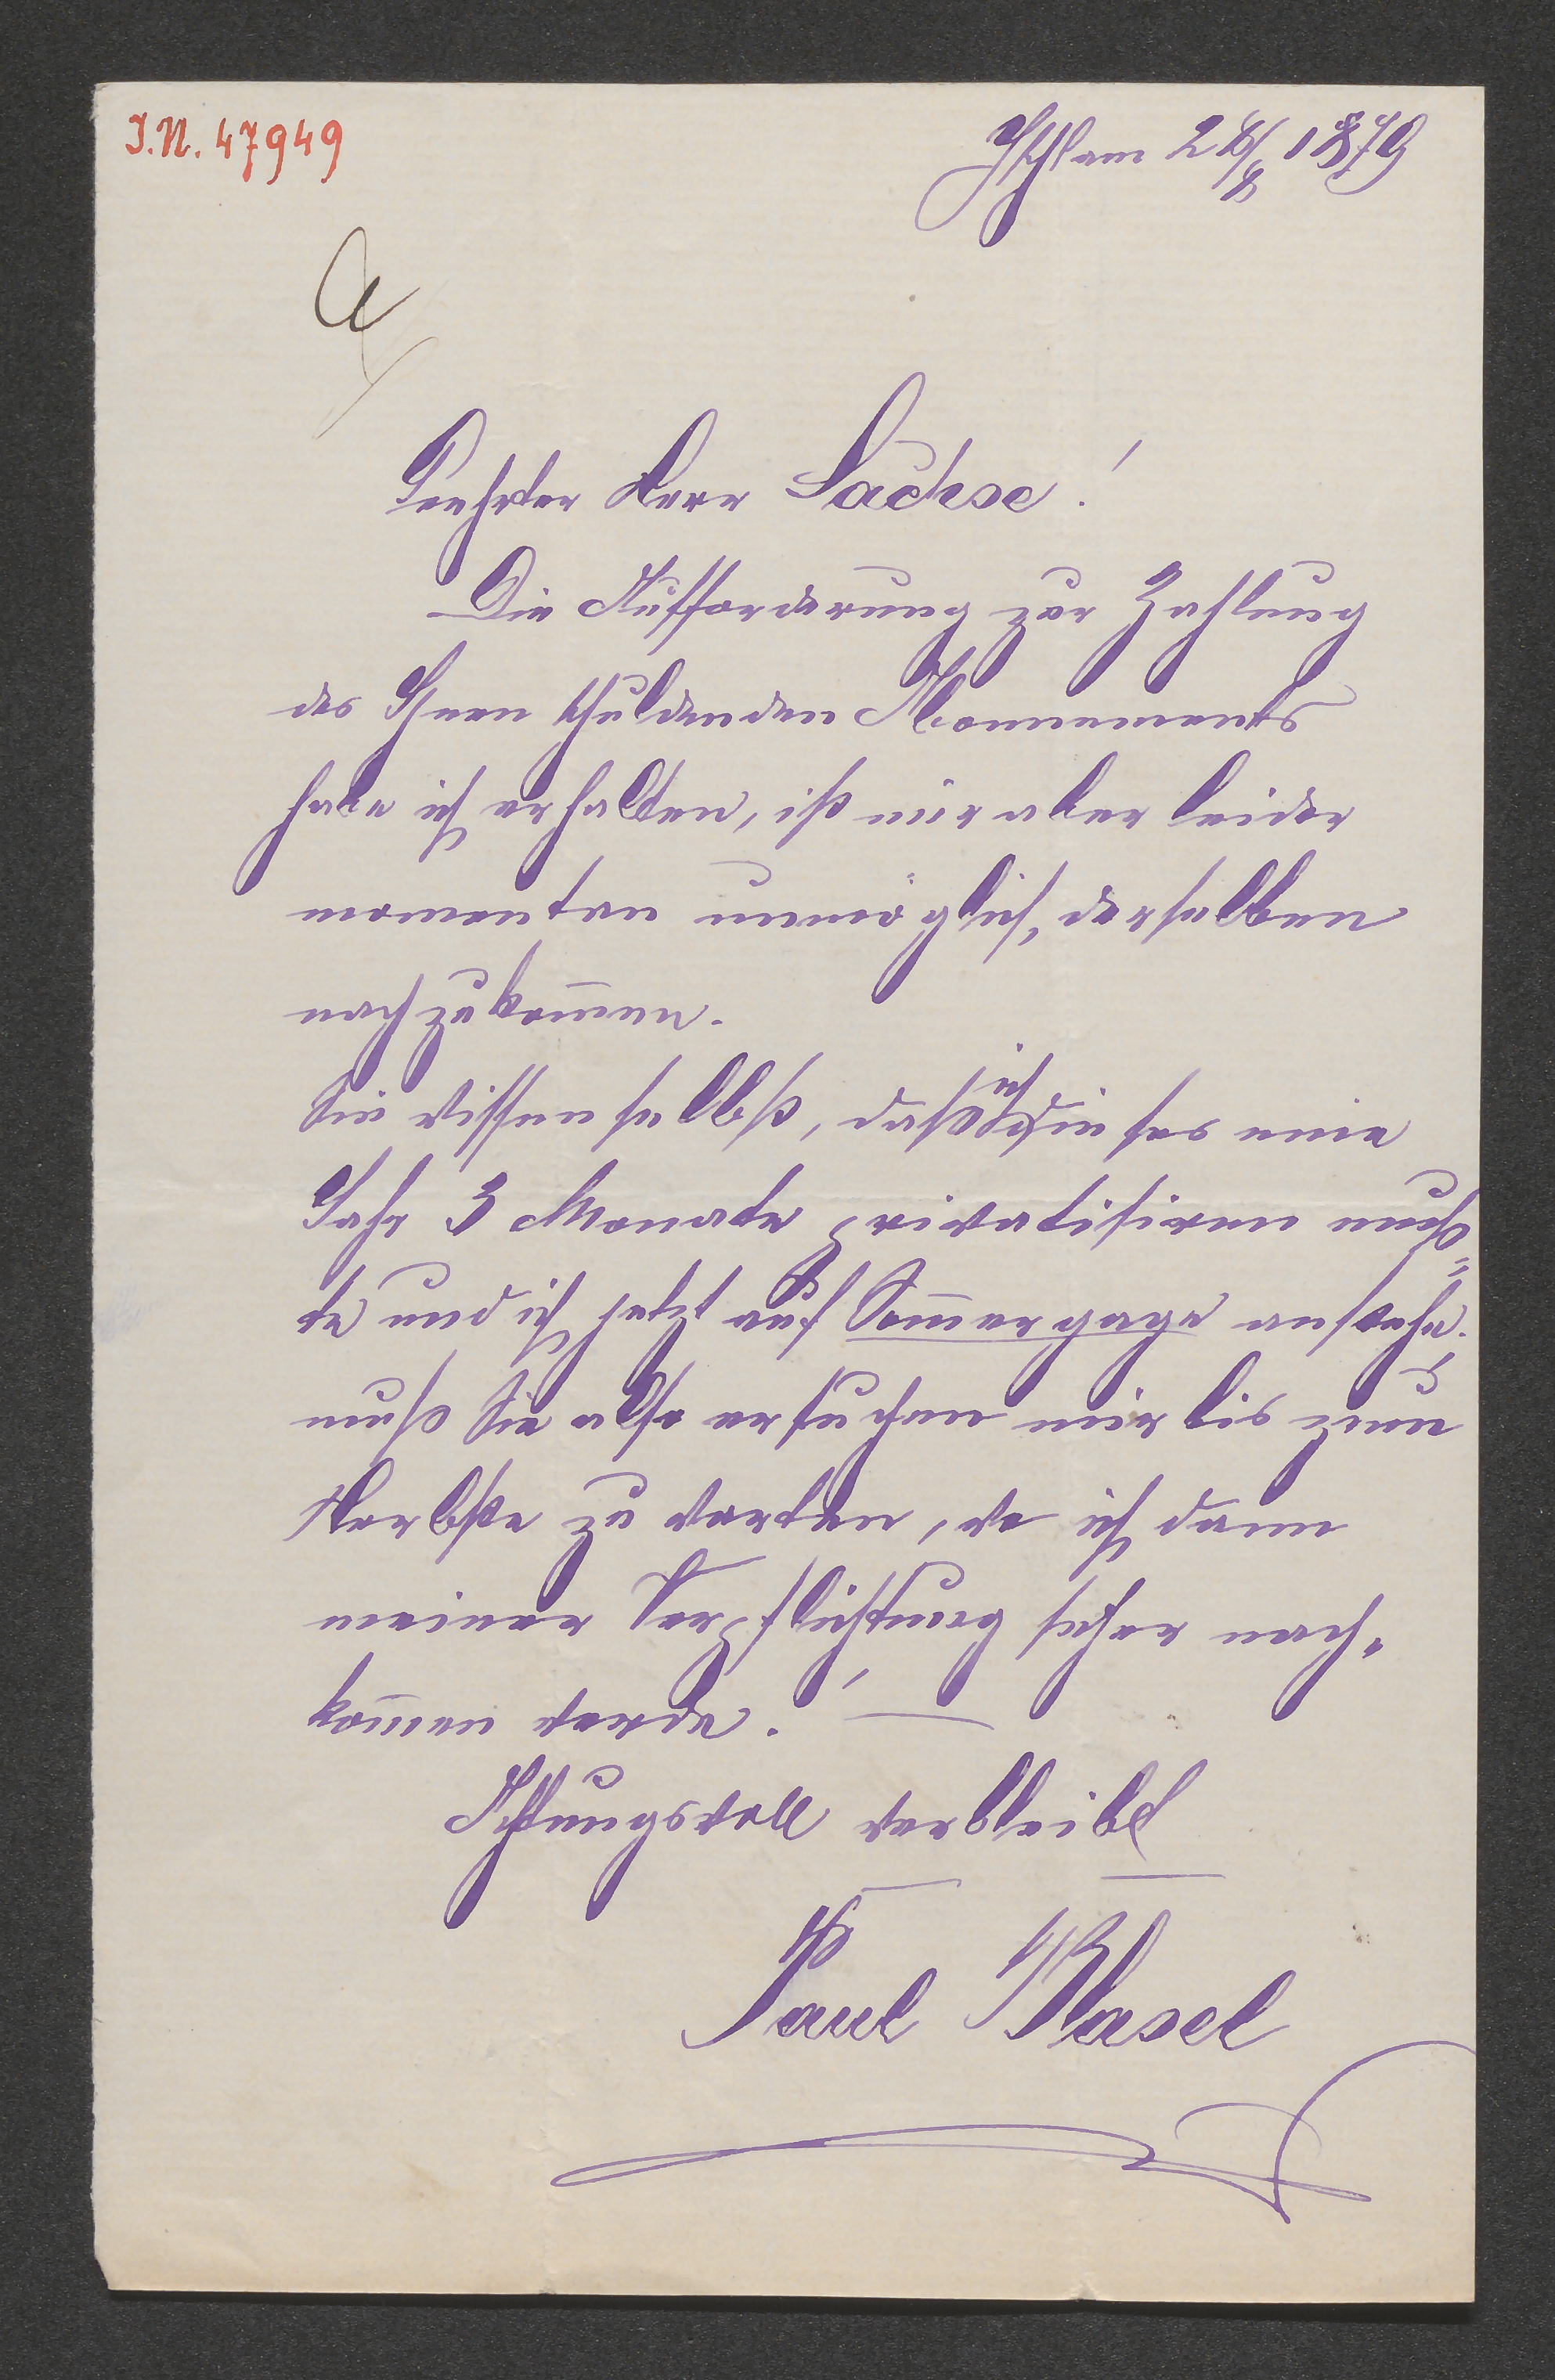 I.N. 47949
Ischl am 28/8 1879
Geehrter Herr Sachse!
Die Aufforderung zur Zahlung
des Ihnen schuldenden Abonnements
habe ich erhalten, ist mir aber leider
momentan unmöglich, derselben
nachzukom̅en.
Sie wissen selbst, daß ich dieses
Jahr 3 Monate privatisiren muß=
te und ich jetzt auf Som̅ergage anstehe.
muß Sie also ersuchen mir bis zum
Herbste zu warten, wo ich dann
meiner Verpflichtung sicher nach=
kom̅en werde! —
Achtungsvoll verbleibt
Paul Blasel